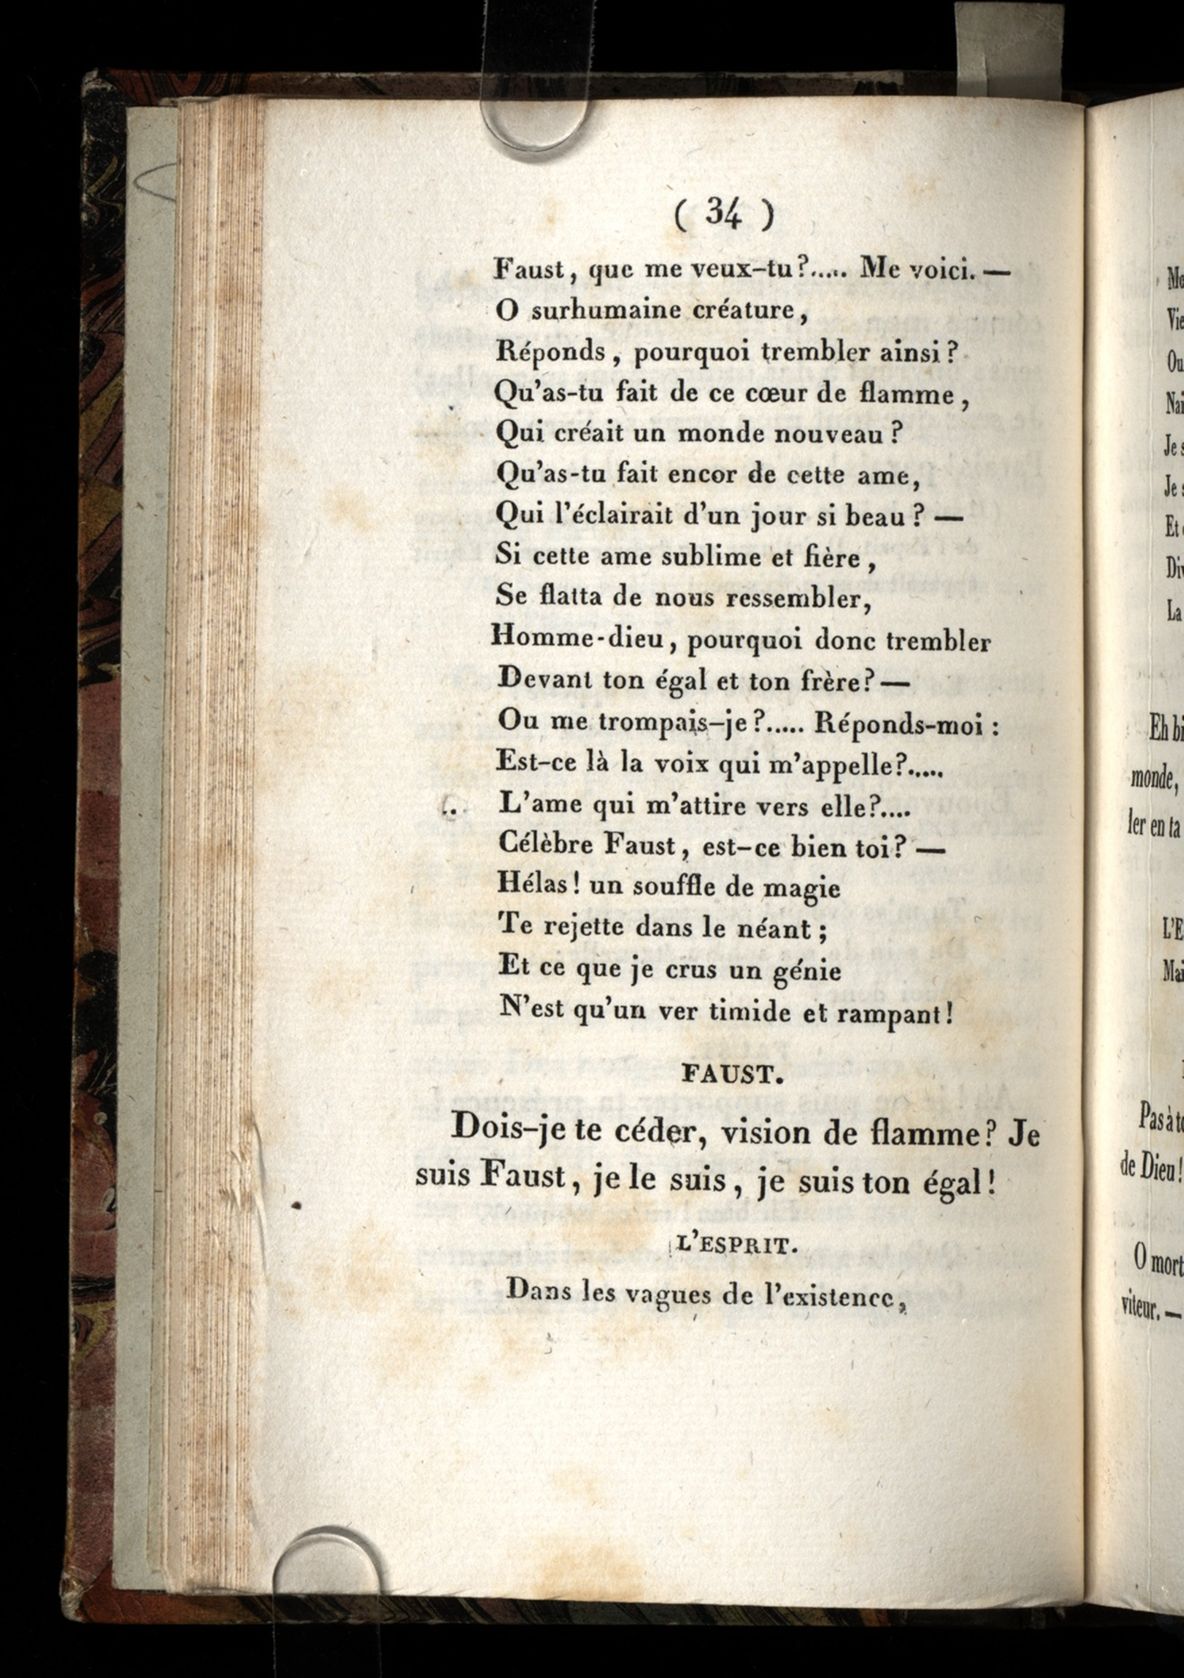 ( 34 )
Faust, que me veux-tu?..... Me voici. —
O surhumaine créature,
Réponds, pourquoi trembler ainsi?
Qu'as-tu fait de ce cœur de flamme,
Qui créait un monde nouveau?
Qu'as-tu fait encor de cette ame,
Qui l'éclairait d'un jour si beau? —
Si cette ame sublime et fière,
Se flatta de nous ressembler,
Homme-dieu, pourquoi donc trembler
Devant ton égal et ton frère? —
Ou me trompais-je?..... Réponds-moi :
Est-ce là la voix qui m'appelle?.....
L'ame qui m'attire vers elle?....
Célèbre Faust, est-ce bien toi? —
Hélas! un souffle de magie
Te rejette dans le néant;
Et ce que je crus un génie
N'est qu'un ver timide et rampant!
FAUST.
Dois-je te céder, vision de flamme? Je
suis Faust, je le suis, je suis ton égal!
L'ESPRIT.
Dans les vagues de l'existence,
Vie
Ou
Nai
Je s
Je s
Et
Div
La
Eh bi
monde,
ler en ta
L'E
Mai
Pas à to
de Dieu!
O mort
viteur. —